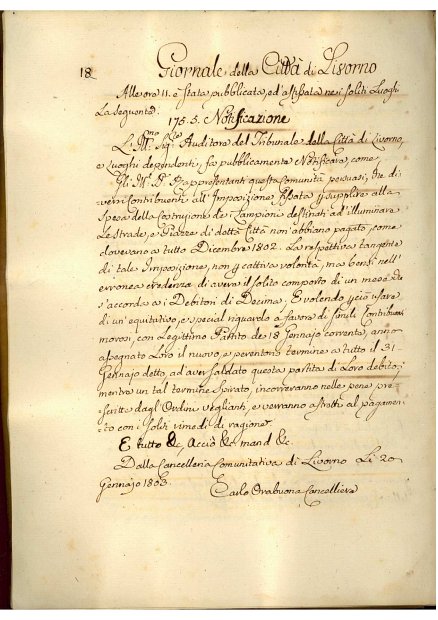 18
Giornale della Città di Livorno
Alle ore 11. è stata pubblicata, ed'affissata nei soliti Luoghi
La seguente
1755. Notificazione
L'Ill.mo Sig.re Auditore del Tribunale della Città di Livorno,
e Luoghi dependenti, fa pubblicamente Notificare, come
Gl'Ill.i Rappresentanti questa Comunità persuasi, che di-
versi Contribuenti all'Imposizione fissata p supplire alla
Spesa della Costruzione de i Lampioni destinati ad'illuminare
Le Strade, e Piazze di detta Città non abbiano pagato, come
dovevano a tutto Dicembre 1802. La respettiva tangente
di tale Imposizione, non p cattiva volontà, ma bensì nell'
erronea credenza di avere il solito comporto di un mese che
s'accorda a i Debitori di Decima, E volendo p ciò usare
di un'equitativo, e special riguardo a favore di simili Contribuenti
morosi, con Legittimo Partito de 18 Gennajo corrente, anno
assegnato Loro il nuovo, e perentorio termine a tutto il 31
Gennajo detto, ad aver saldato questa partita di Loro debito,
mentre un tal termine spirato, incorreranno nelle pene pre-
scritte dagl'Ordini veglianti, e verranno astretti al pagamen-
to con i soliti rimedj di ragione.
E tutto &c. Acciò &c. mand &c.
Dalla Cancelleria Comunitativa di Livorno Li 20
Gennajo 1803.
Carlo Orabuona Cancelliere